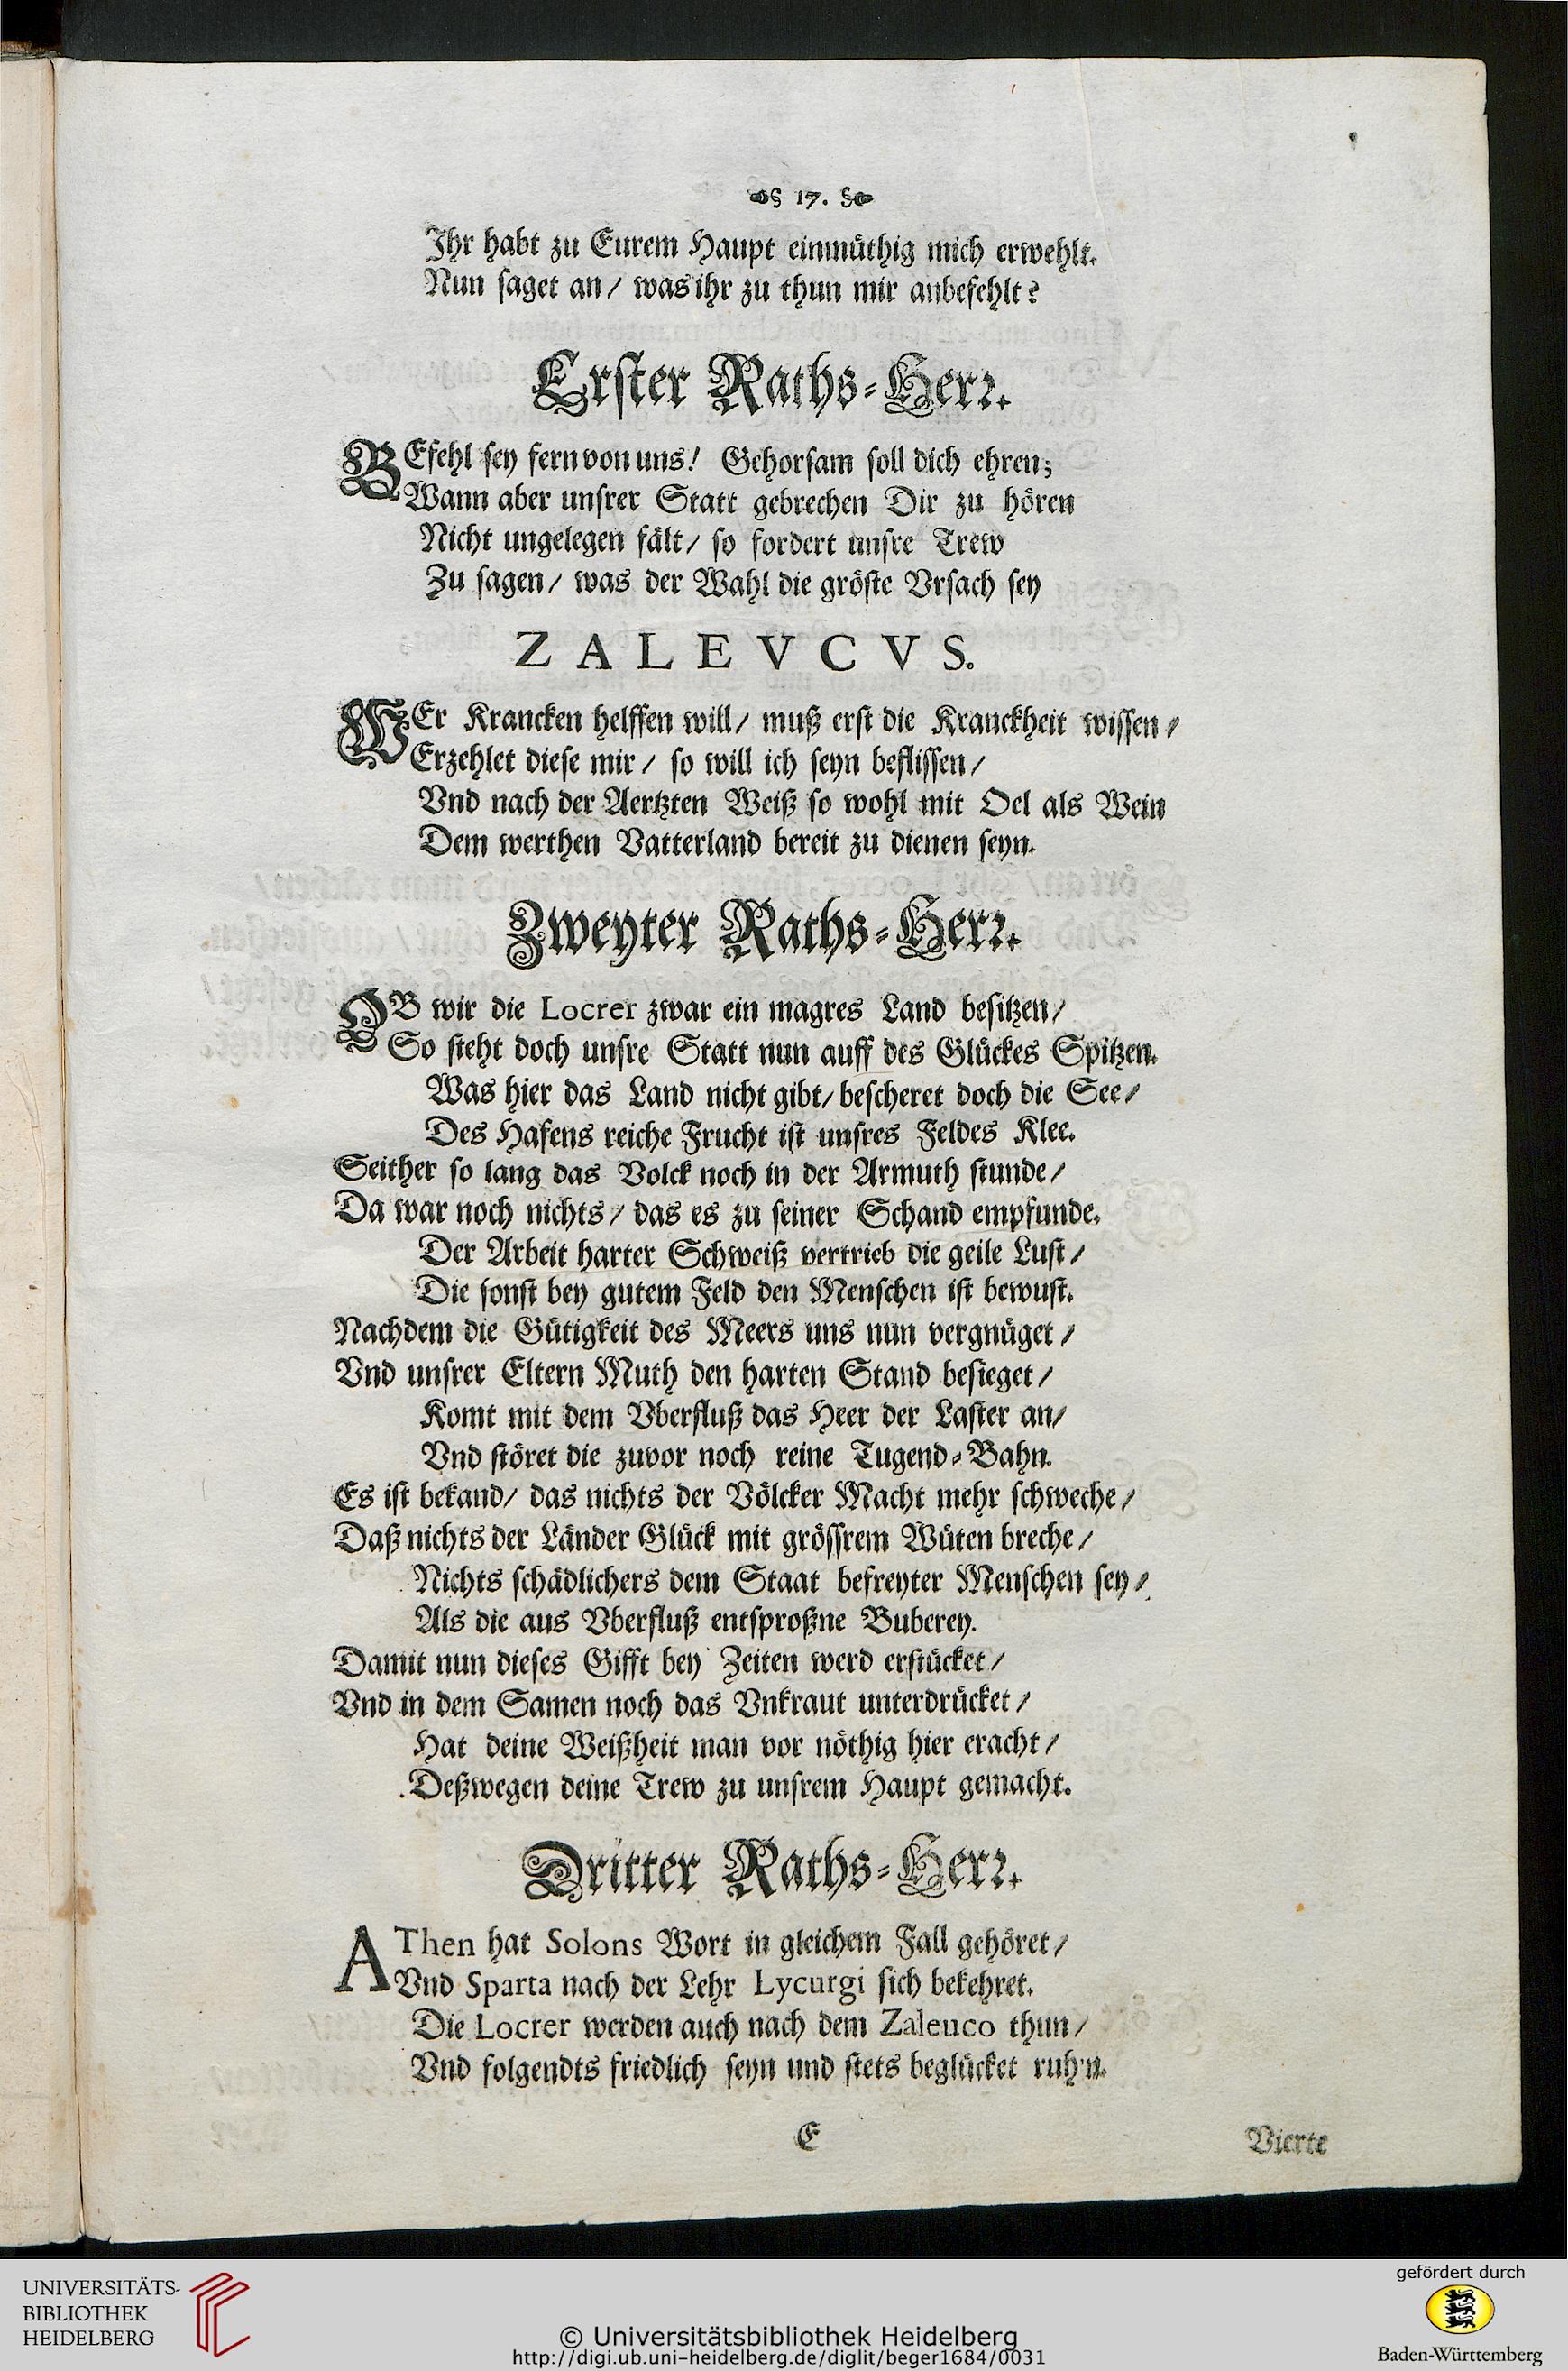 § 17. §
Ihr habt zu Eurem Haupt einmüthig mich erwehlt.
Nun saget an / was ihr zu thun mir anbefehlt?
Erster Raths-Herr.
BEfehl sey fern von uns! Gehorsam soll dich ehren;
Wann aber unsrer Statt gebrechen Dir zu hören
Nicht ungelegen fält / so fordert unsre Trew
Zu sagen / was der Wahl die gröste Vrsach sey
ZALEVCVS.
WEr Krancken helffen will / muß erst die Kranckheit wissen /
Erzehlet diese mir / so will ich seyn beflissen /
Vnd nach der Aertzten Weiß so wohl mit Oel als Wein
Dem werthen Vatterland bereit zu dienen seyn.
Zweyter Raths-Herr.
OB wir die Locrer zwar ein magres Land besitzen /
So steht doch unsre Statt nun auff des Glückes Spitzen.
Was hier das Land nicht gibt / bescheret doch die See /
Des Hafens reiche Frucht ist unsres Feldes Klee.
Seither so lang das Volck noch in der Armuth stunde /
Da war noch nichts / das es zu seiner Schand empfunde.
Der Arbeit harter Schweiß vertrieb die geile Lust /
Die sonst bey gutem Feld den Menschen ist bewust.
Nachdem die Gütigkeit des Meers uns nun vergnüget /
Vnd unsrer Eltern Muth den harten Stand besieget /
Komt mit dem Vberfluß das Heer der Laster an /
Vnd störet die zuvor noch reine Tugend-Bahn.
Es ist bekand / das nichts der Völcker Macht mehr schweche /
Daß nichts der Länder Glück mit grössrem Wüten breche /
Nichts schädlichers dem Staat befreyter Menschen sey /
Als die aus Vberfluß entsproßne Buberey.
Damit nun dieses Gifft bey Zeiten werd erstücket /
Vnd in dem Samen noch das Vnkraut unterdrücket /
Hat deine Weißheit man vor nöthig hier eracht /
Deßwegen deine Trew zu unsrem Haupt gemacht.
Dritter Raths-Herr.
AThen hat Solons Wort in gleichem Fall gehöret /
Vnd Sparta nach der Lehr Lycurgi sich bekehret.
Die Locrer werden auch nach dem Zaleuco thun /
Vnd folgendts friedlich seyn und stets beglücket ruh'n.
E
Vierte
UNIVERSITÄTS-
BIBLIOTHEK
HEIDELBERG
© Universitätsbibliothek Heidelberg
http://digi.ub.uni-heidelberg.de/diglit/beger1684/0031
gefördert durch
Baden-Württemberg